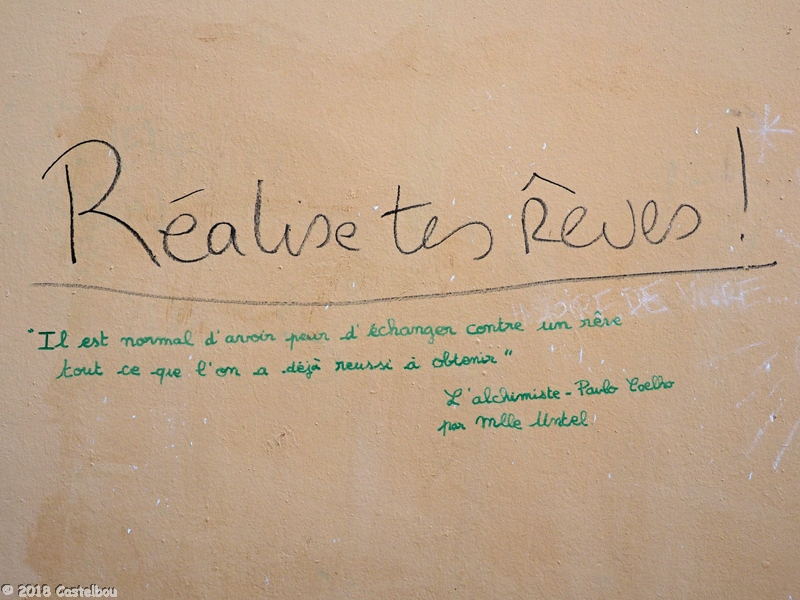 Réalise tes rêves !
JOIE DE VIVRE....
"Il est normal d'avoir peur d'échanger contre un rêve
tout ce que l'on a déjà reussi à obtenir"
L'alchimiste - Paulo Coelho
par Mlle Untel
© 2018 Castelbou